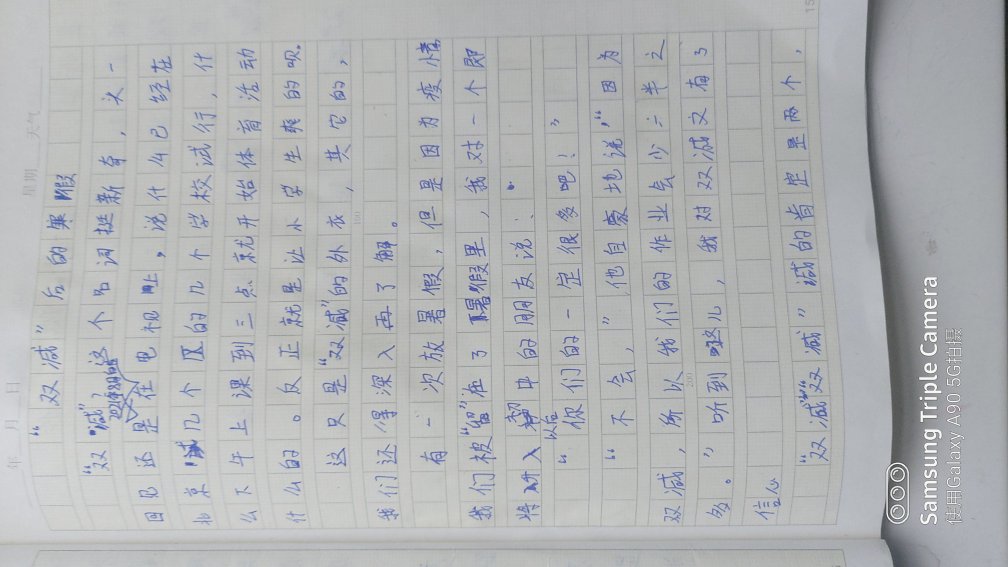 年 月 日 星期 天气
“双减”后的寒假
“双减”，这个名词挺新奇，头一
2021年8月的
回见还是在电视上，说什么已经在
北京几个区的几个学校试行，什
么下午上课到三点就开始体育活动
什么的。反正就是让小学生爽的呗。
这只是“双减”的外衣，其它的，
我们还得深入再了解。
有一次放暑假，但是因为疫情
我们被“留”在了暑假里，我对一个即
将升入初中的朋友说：
以后
“你们的一定很多吧！”
“不会，”他自豪地说，“因为
双减，所以我们的作业会少三半之
多。”听到这儿，我对双减又有了
信心
“双减”“双减”减的肯定是两个，
100
200
15
Samsung Triple Camera
使用Galaxy A90 5G拍摄